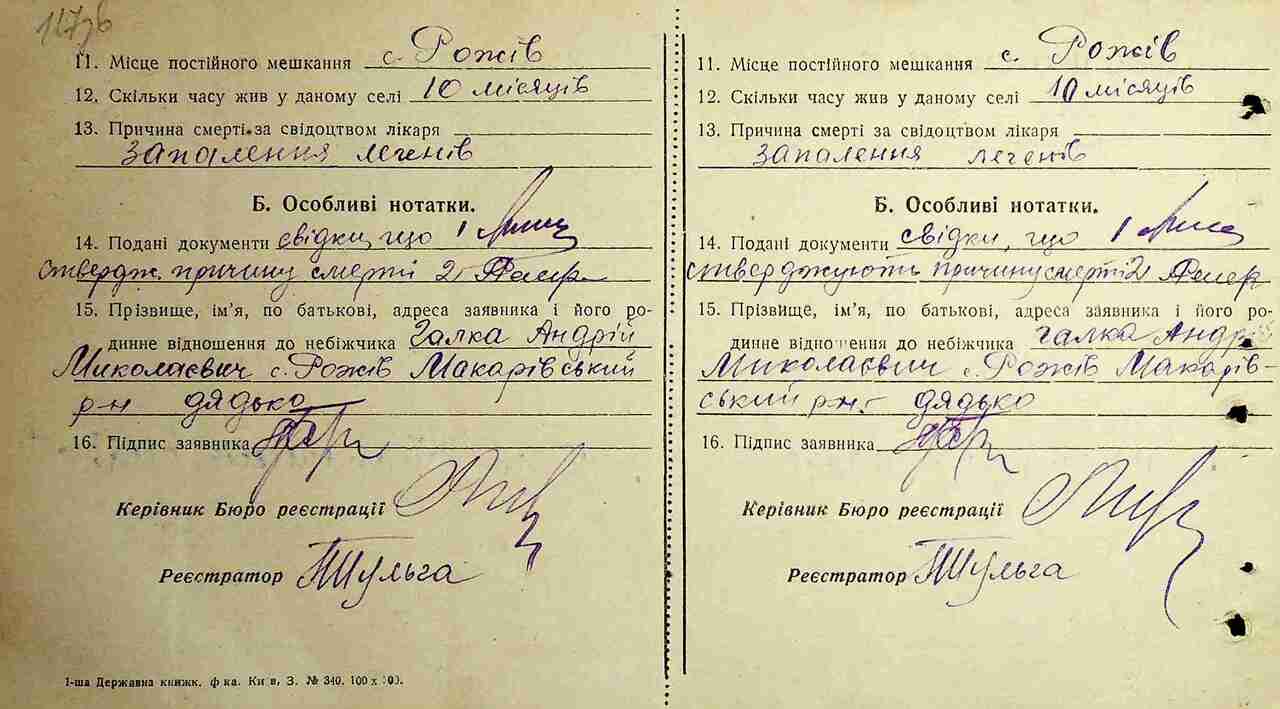 11. Місце постійного мешкання с. Рожів
12. Скільки часу жив у даному селі 10 місяців
13. Причина смерті за свідоцтвом лікаря
запалення легенів
Б. Особливі нотатки.
14. Подані документи свідки, що 1
ствердж. причину смерті 2
15. Прізвище, ім'я, по батькові, адреса заявника і його ро-
динне відношення до небіжчика Галка Андрій
Миколаєвич с. Рожів Макарівський
р-н дядько
16. Підпис заявника
Керівник Бюро реєстрації
Реєстратор Шульга
1-ша Державна книжк. ф-ка. Київ, З. № 340. 100 х 100.
11. Місце постійного мешкання с. Рожів
12. Скільки часу жив у даному селі 10 місяців
13. Причина смерті за свідоцтвом лікаря
запалення легенів
Б. Особливі нотатки.
14. Подані документи свідки, що 1
стверджують причину смерті 2
15. Прізвище, ім'я, по батькові, адреса заявника і його ро-
динне відношення до небіжчика Галка Андрій
Миколаєвич с. Рожів Макарів-
ський р-н дядько
16. Підпис заявника
Керівник Бюро реєстрації
Реєстратор Шульга